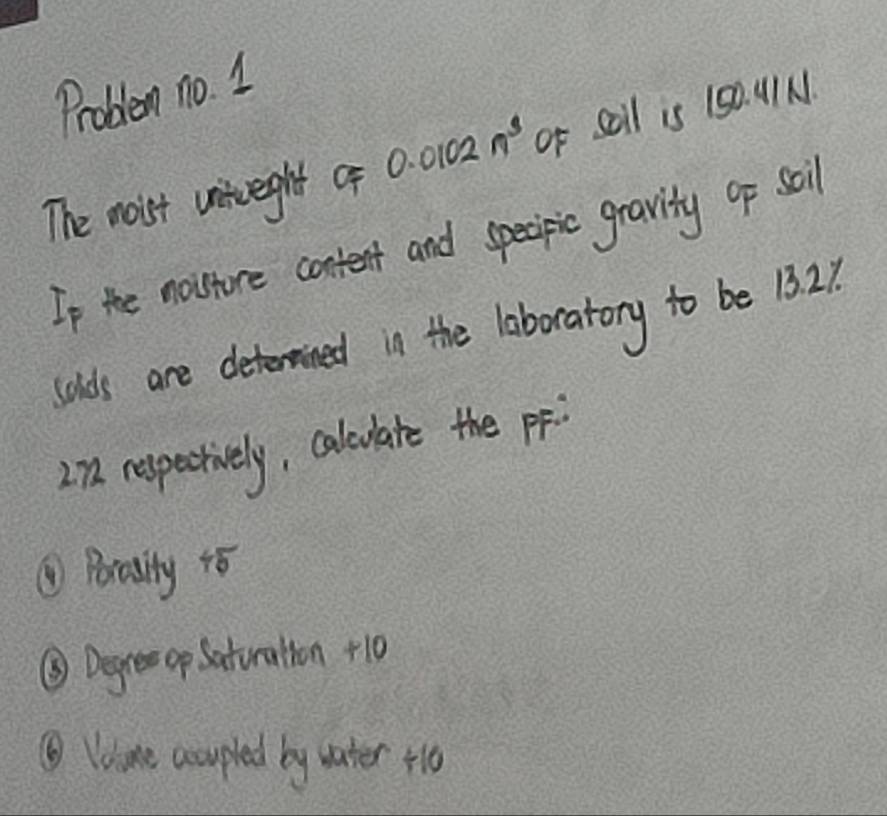 Problem no. 1
The moist unitweght OF 0.0102 m³ OF soil is 150.41 N.
IF the moisture content and specific gravity OF soil
solids are determined in the laboratory to be 13.2%
2.72 respectively, calculate the FF:
④ Porosity +5
⑤ Degree oF Saturation +10
⑥ Volume occupied by water +10